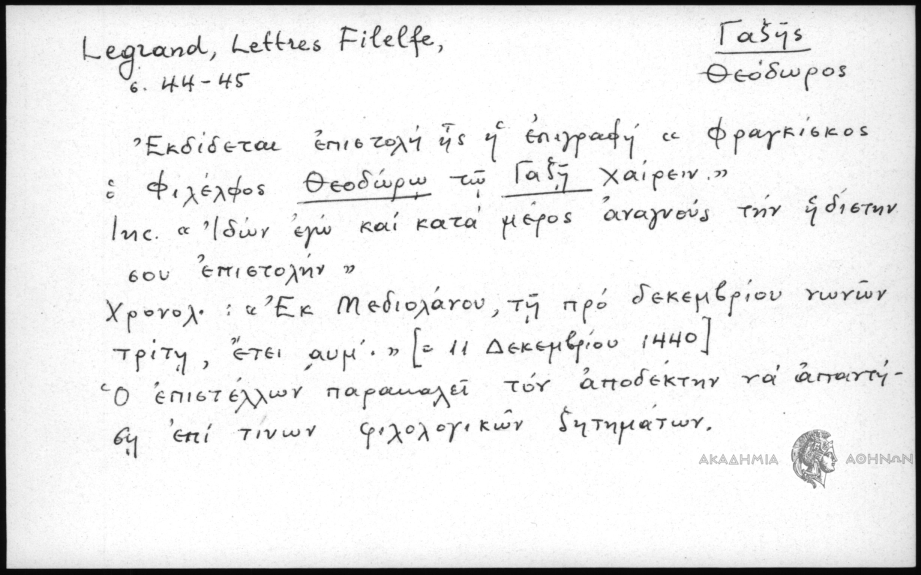 Legrand, Lettres Filelfe,
σ. 44-45
Γαζῆς
Θεόδωρος
Ἐκδίδεται ἐπιστολή ἧς ἡ ἐπιγραφή « Φραγκίσκος
ὁ Φιλέλφος Θεοδώρῳ τῷ Γαζῇ χαίρειν.»
Inc. « Ἰδών ἐγώ καί κατά μέρος ἀναγνούς τήν ἡδίστην
σου ἐπιστολήν »
Χρονολ. : « Ἐκ Μεδιολάνου, τῇ πρό δεκεμβρίου νωνῶν
τρίτῃ, ἔτει ͵αυμ΄. » [= 11 Δεκεμβρίου 1440]
Ὁ ἐπιστέλλων παρακαλεῖ τόν ἀποδέκτην νά ἀπαντή-
σῃ ἐπί τινων φιλολογικῶν ζητημάτων.
ΑΚΑΔΗΜΙΑ ΑΘΗΝΩΝ